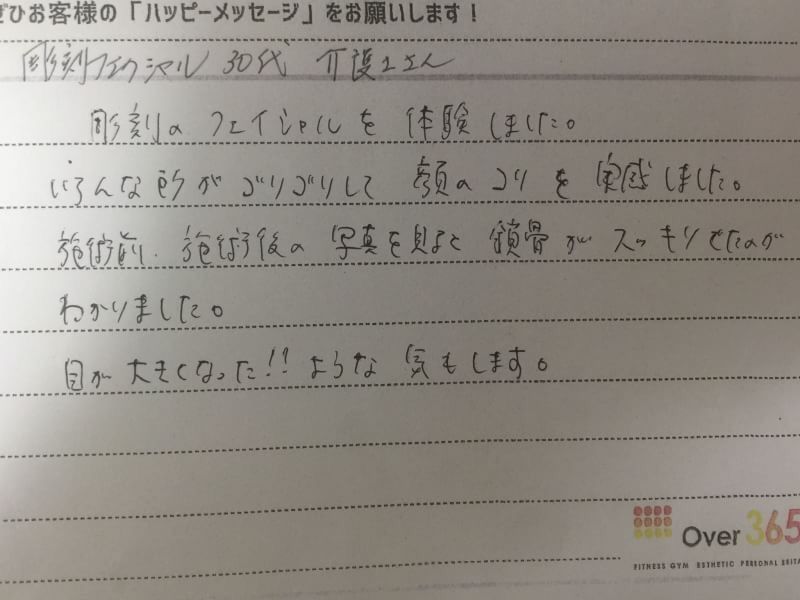 ぜひお客様の「ハッピーメッセージ」をお願いします!
彫刻フェイシャル 30代 介護士さん
彫刻のフェイシャルを体験しました。
いろんな所がゴリゴリして 顔のコリを実感しました。
施術前、施術後の写真を見ると鎖骨がスッキリでたのが
わかりました。
目が大きくなった!!ような気もします。
Over 365
FITNESS GYM ESTHETIC PERSONAL